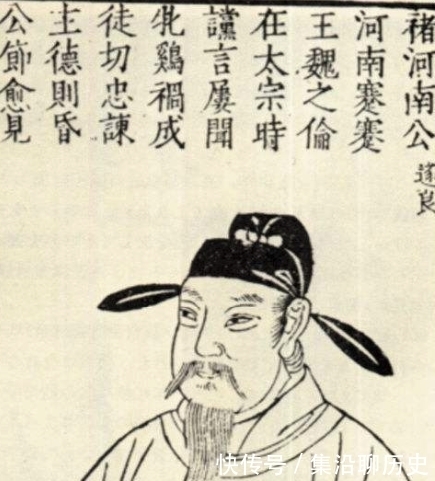 褚河南公
遂良
河南蹇蹇
王魏之倫
在太宗時
讜言屢聞
牝鷄禍成
徒切忠諫
主德則昏
公節愈見
快传号/集沿聊历史